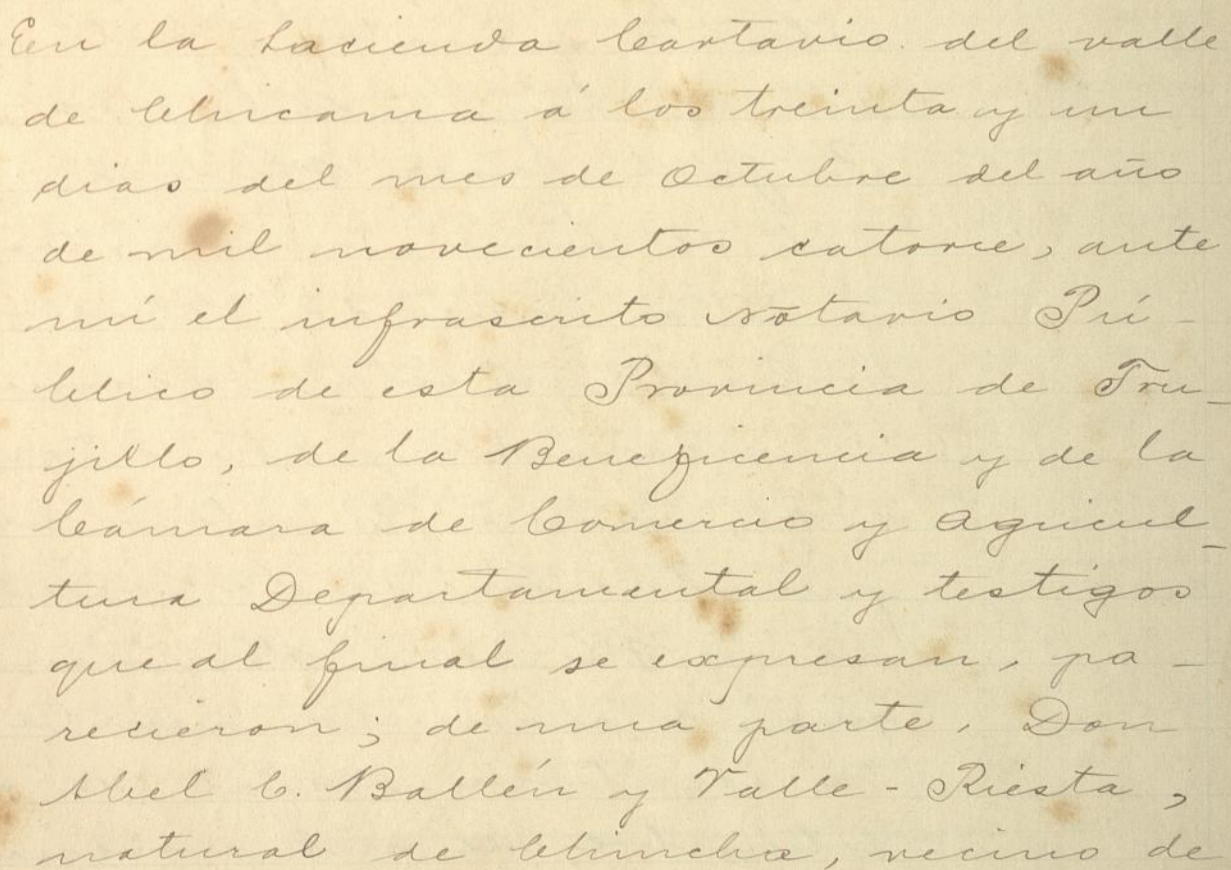 En la hacienda Cartavio del valle
de Chicama á los treinta y un
dias del mes de Octubre del año
de mil novecientos catorce, ante
mí el infrascrito Notario Pú-
blico de esta Provincia de Tru-
jillo, de la Beneficencia y de la
Cámara de Comercio y Agricul-
tura Departamental y testigos
que al final se expresan, pa-
recieron; de una parte, Don
Abel C. Ballén y Valle-Riesta,
natural de Chincha, vecino de